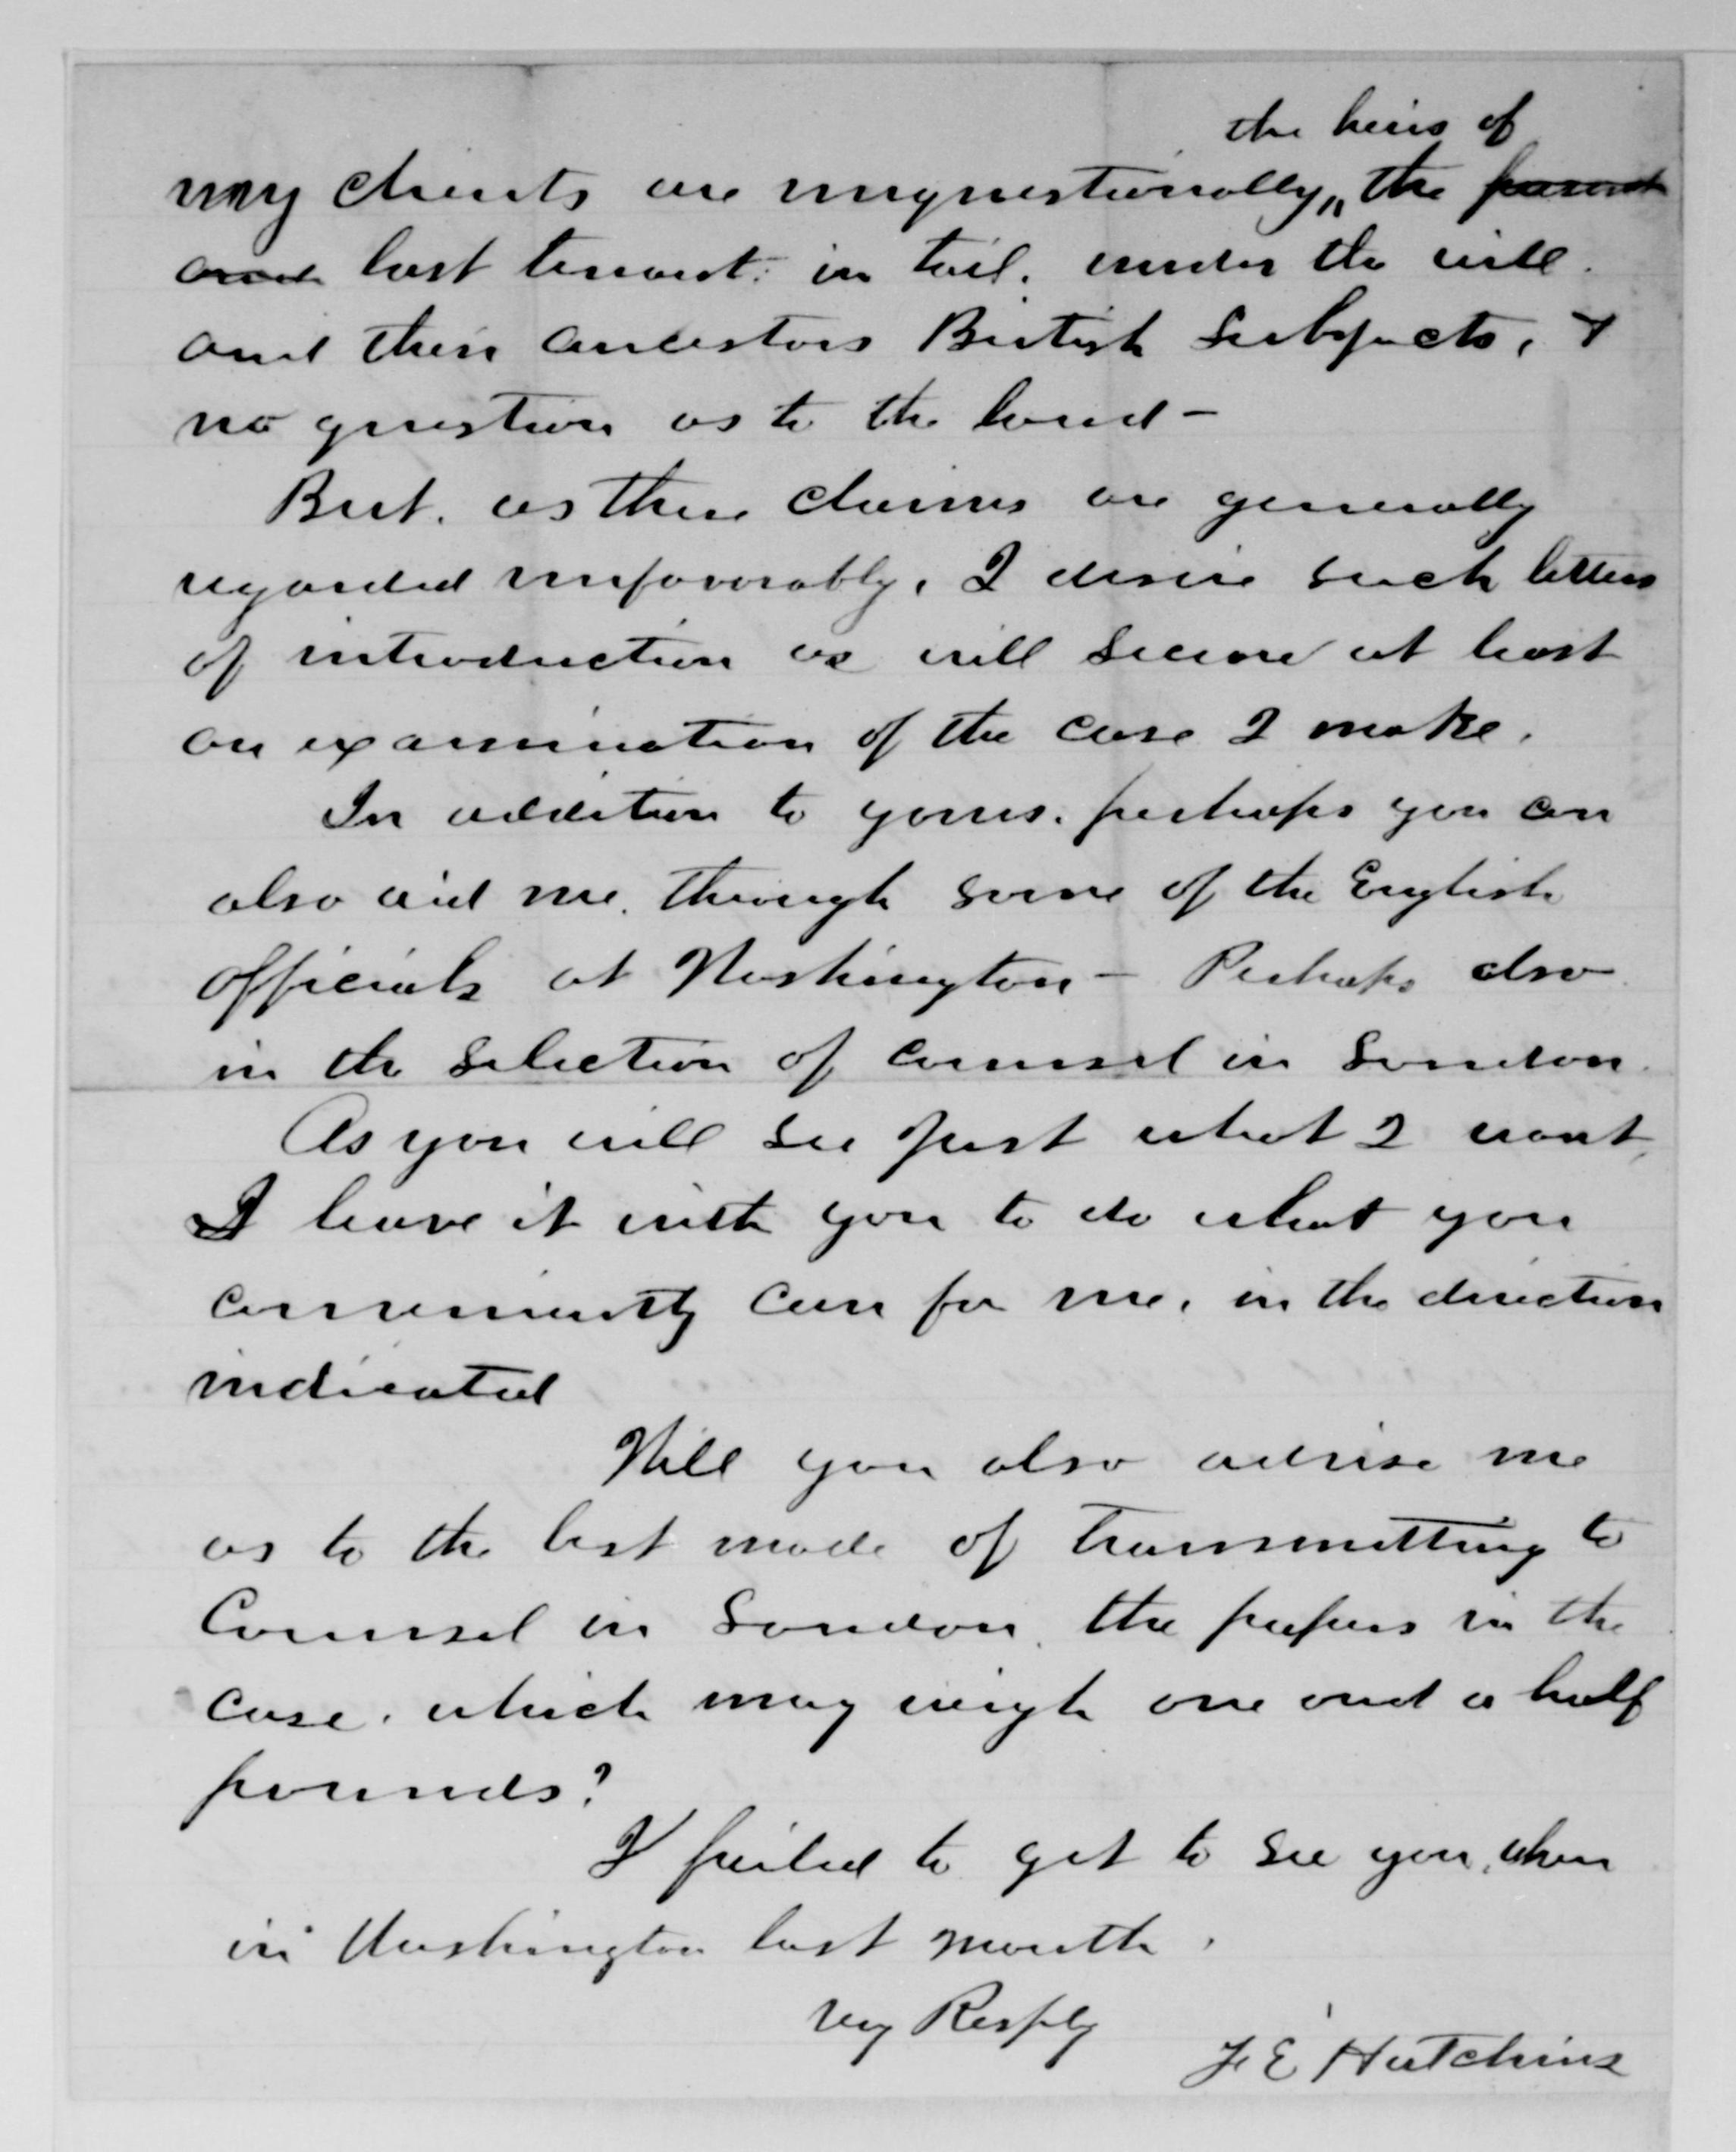 the heirs of
my clients are unquestionally, the
and last tenant in tail, under the will.
and their ancestors British Subjects, &
no question as to the land -
But, as these claims are generally
regarded unfavorably, I desire such letters
of introduction as will secure at least
an examination of the case I make.
In addition to yours, perhaps you can
also aid me, through some of the English
officials at Washington - Perhaps also
in the selection of counsel in London.
As you will see just what I want,
I leave it with you to do what you
conveniently can for me, in the direction
indicated
Will you also advise me
as to the best mode of transmitting to
Counsel in London, the papers in the
case, which may weigh one and a half
pounds?
I failed to get to see you, when
in Washington last month.
Very Resply
F E Hutchins